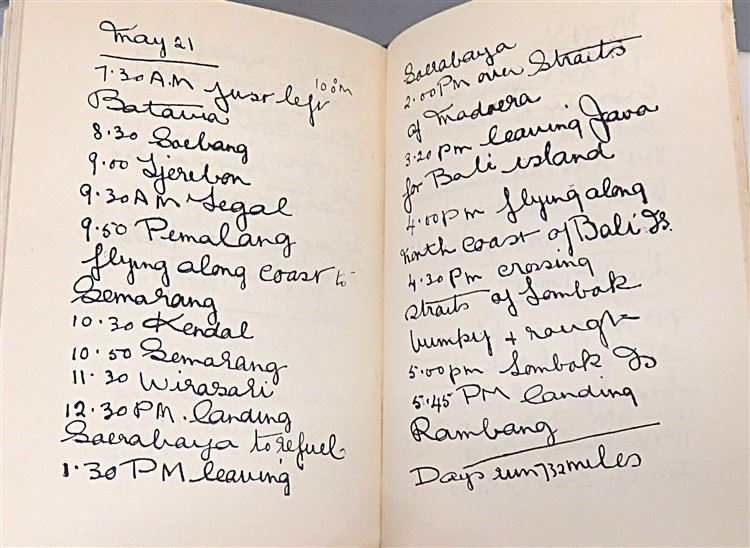 May 21
7.30 A.M just left
Batavia
8.30 Soebang
9.00 Tjerebon
9.30 AM Tegal
9.50 Pemalang
flying along coast to
Semarang
10.30 Kendal
10.50 Semarang
11.30 Wirasari
12.30 PM. landing
Soerabaya to refuel
1.30 PM leaving
Soerabaya
2.00 PM over Straits
of Madoera
3.20 pm leaving Java
for Bali island
4.00 pm flying along
north coast of Bali Is.
4.30 pm crossing
straits of Lombok
bumpy + rough
5.00 pm Lombok Is
5.45 PM landing
Rambang
Days run 732 miles